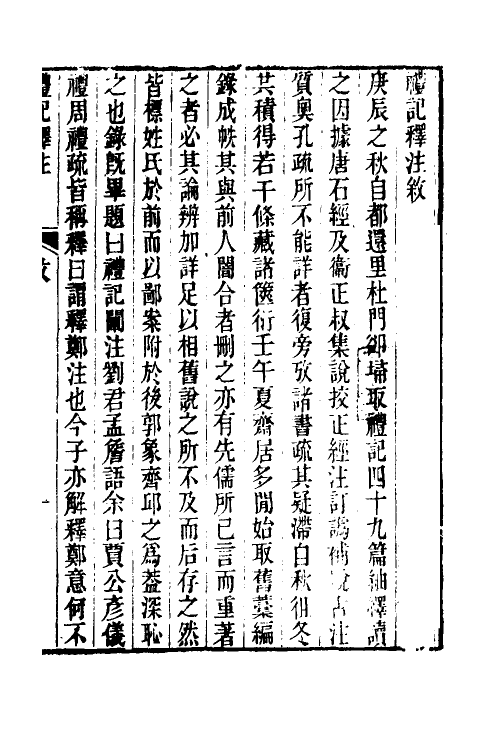 禮記釋注敘
庚辰之秋自都還里杜門卻埽取禮記四十九篇紬繹讀
之因據唐石經及衞正叔集說挍正經注訂譌補說古注
質奧孔疏所不能詳者復旁攷諸書疏其疑滯自秋徂冬
共積得若干條藏諸篋衍壬午夏齋居多閒始取舊藁編
錄成帙其與前人闇合者刪之亦有先儒所已言而重著
之者必其論辨加詳足以相舊說之所不及而后存之然
皆標姓氏於前而以鄙案附於後郭象齊邱之爲葢深恥
之也錄旣畢題曰禮記闡注劉君孟詹語余曰賈公彥儀
禮周禮疏皆稱釋曰謂釋鄭注也今子亦解釋鄭意何不
禮記釋注 敘 一